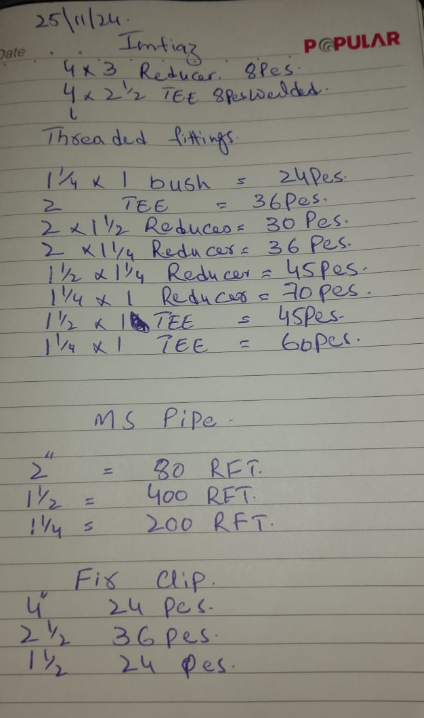 25/11/24.
Date
Imtiaz
POPULAR
4 x 3 Reducer. 8Pes.
4 x 2 1/2 TEE 8Pes welded.
Threaded fittings.
1 1/4 x 1 bush = 24Pes.
2 TEE = 36Pes.
2 x 1 1/2 Reducer = 30 Pes.
2 x 1 1/4 Reducer = 36 Pes.
1 1/2 x 1 1/4 Reducer = 45Pes.
1 1/4 x 1 Reducer = 70 pes.
1 1/2 x 1 TEE = 45Pes.
1 1/4 x 1 TEE = 60pes.
MS Pipe.
2" = 80 RFT.
1 1/2 = 400 RFT.
1 1/4 = 200 RFT.
Fix Clip.
4" 24 pes.
2 1/2 36 pes.
1 1/2 24 pes.